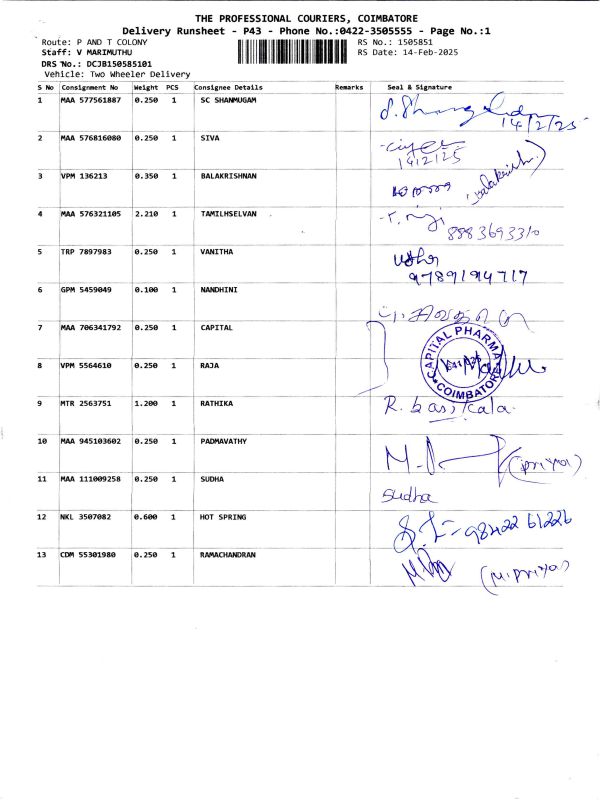 THE PROFESSIONAL COURIERS, COIMBATORE
Delivery Runsheet - P43 - Phone No.:0422-3505555 - Page No.:1
Route: P AND T COLONY RS No.: 1505851
Staff: V MARIMUTHU RS Date: 14-Feb-2025
DRS No.: DCJB150585101
Vehicle: Two Wheeler Delivery
S No Consignment No Weight PCS Consignee Details Remarks Seal & Signature
1 MAA 577561887 0.250 1 SC SHANMUGAM
14/2/25
2 MAA 576816080 0.250 1 SIVA
14/2/25
3 VPM 136213 0.350 1 BALAKRISHNAN
4 MAA 576321105 2.210 1 TAMILHSELVAN
8883693310
5 TRP 7897983 0.250 1 VANITHA
9789194717
6 GPM 5459049 0.100 1 NANDHINI
7 MAA 706341792 0.250 1 CAPITAL
CAPITAL PHARMA
COIMBATORE
8 VPM 5564610 0.250 1 RAJA
9 MTR 2563751 1.200 1 RATHIKA
10 MAA 945103602 0.250 1 PADMAVATHY (priya)
11 MAA 111009258 0.250 1 SUDHA Sudha
12 NKL 3507082 0.600 1 HOT SPRING 98422 61226
13 CDM 55301980 0.250 1 RAMACHANDRAN (M.Priya)